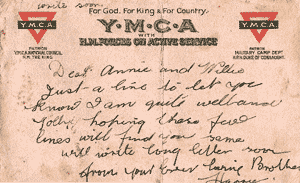 write soon
For God, For King & For Country.
Y.M.C.A
WITH
H.M. FORCES ON ACTIVE SERVICE
Y.M.C.A.
Y.M.C.A.
PATRON
Y.M.C.A. NATIONAL COUNCIL
H.M. THE KING
PATRON
MILITARY CAMP DEPT
H.R.H. DUKE OF CONNAUGHT.
Dear Annie and Willie
Just a line to let you
know I am quite well and
jolly hoping these few
lines will find you same
will write long letter soon
from your ever loving Brother